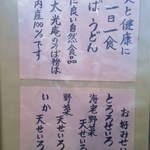 と健康に
一日一食
ば うどん
に良い自然食品
太光庵のそば粉は
内産100%です
お好みせいろ
とろろせいろ
海老、野菜
天せいろ
野菜
天せいろ
いか 天せいろ